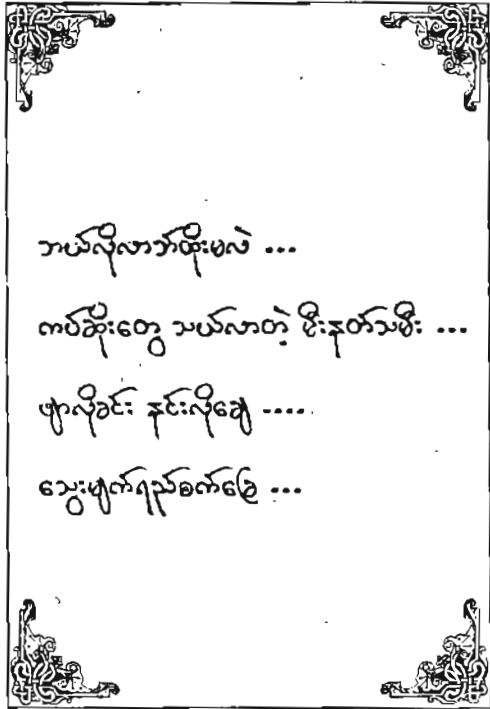 ဘယ်လိုလာဘ်ထိုးမလဲ ...
ကပ်ဆိုးတွေ သယ်လာတဲ့ မီးနတ်သမီး ...
ဖျာလိုခင်း နင်းလိုချေ ....
သွေးမျက်ရည်စက်ခြွေ ...